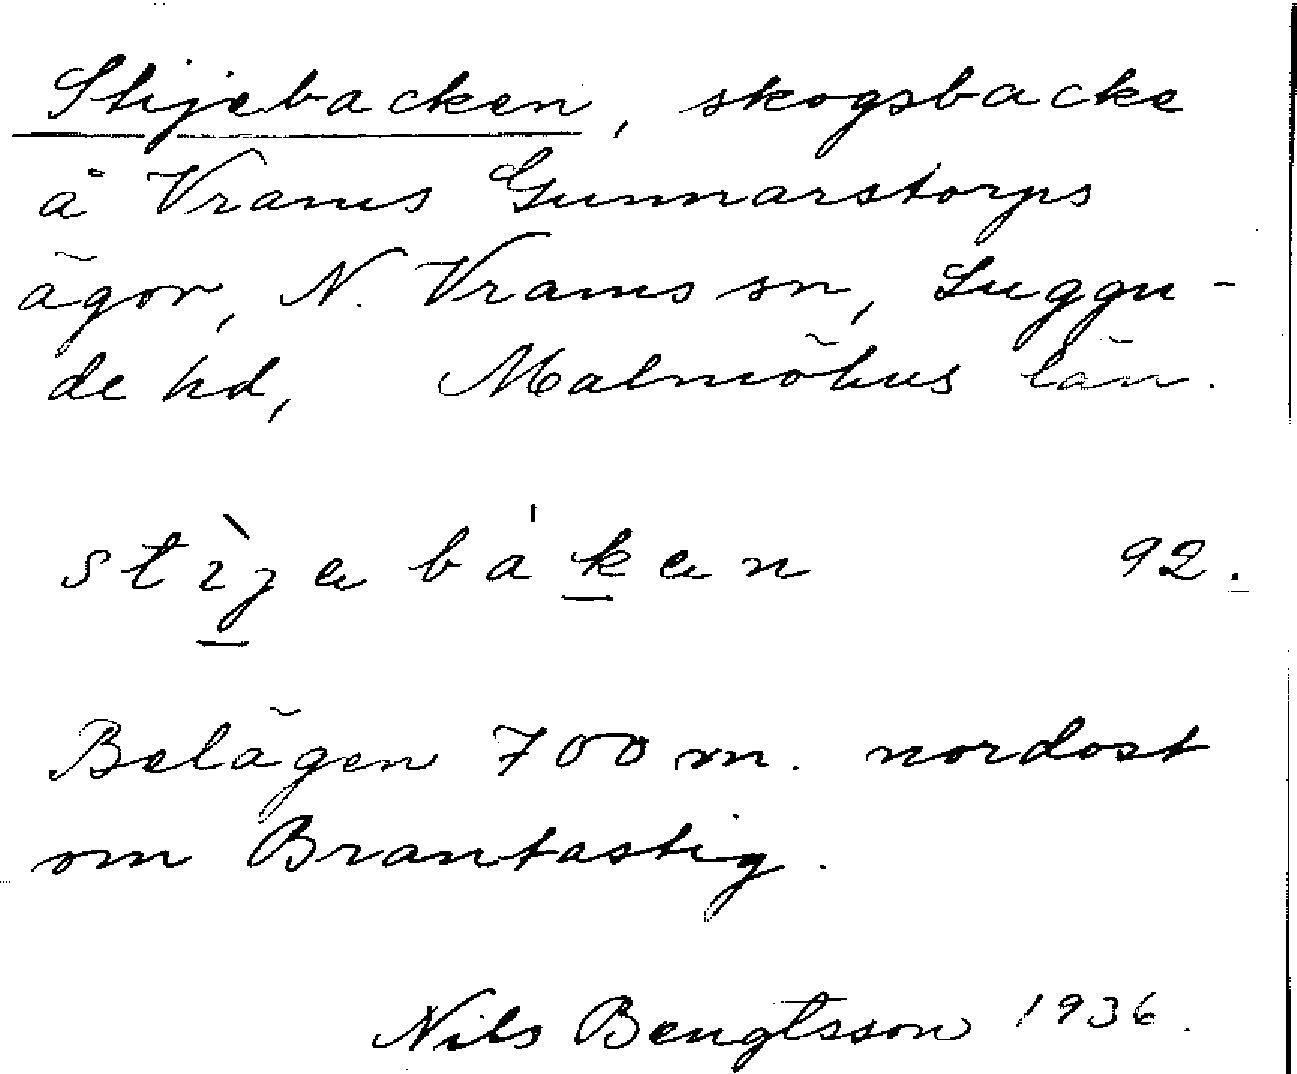 Stijebacken, skogsbacke
å Vrams Gunnarstorps
ägor, N. Vrams sn, Luggu-
de hd, Malmöhus län.
stìjabákan 92.
Belägen 700 m. nordost
om Brantastig.
Nils Bengtsson 1936.